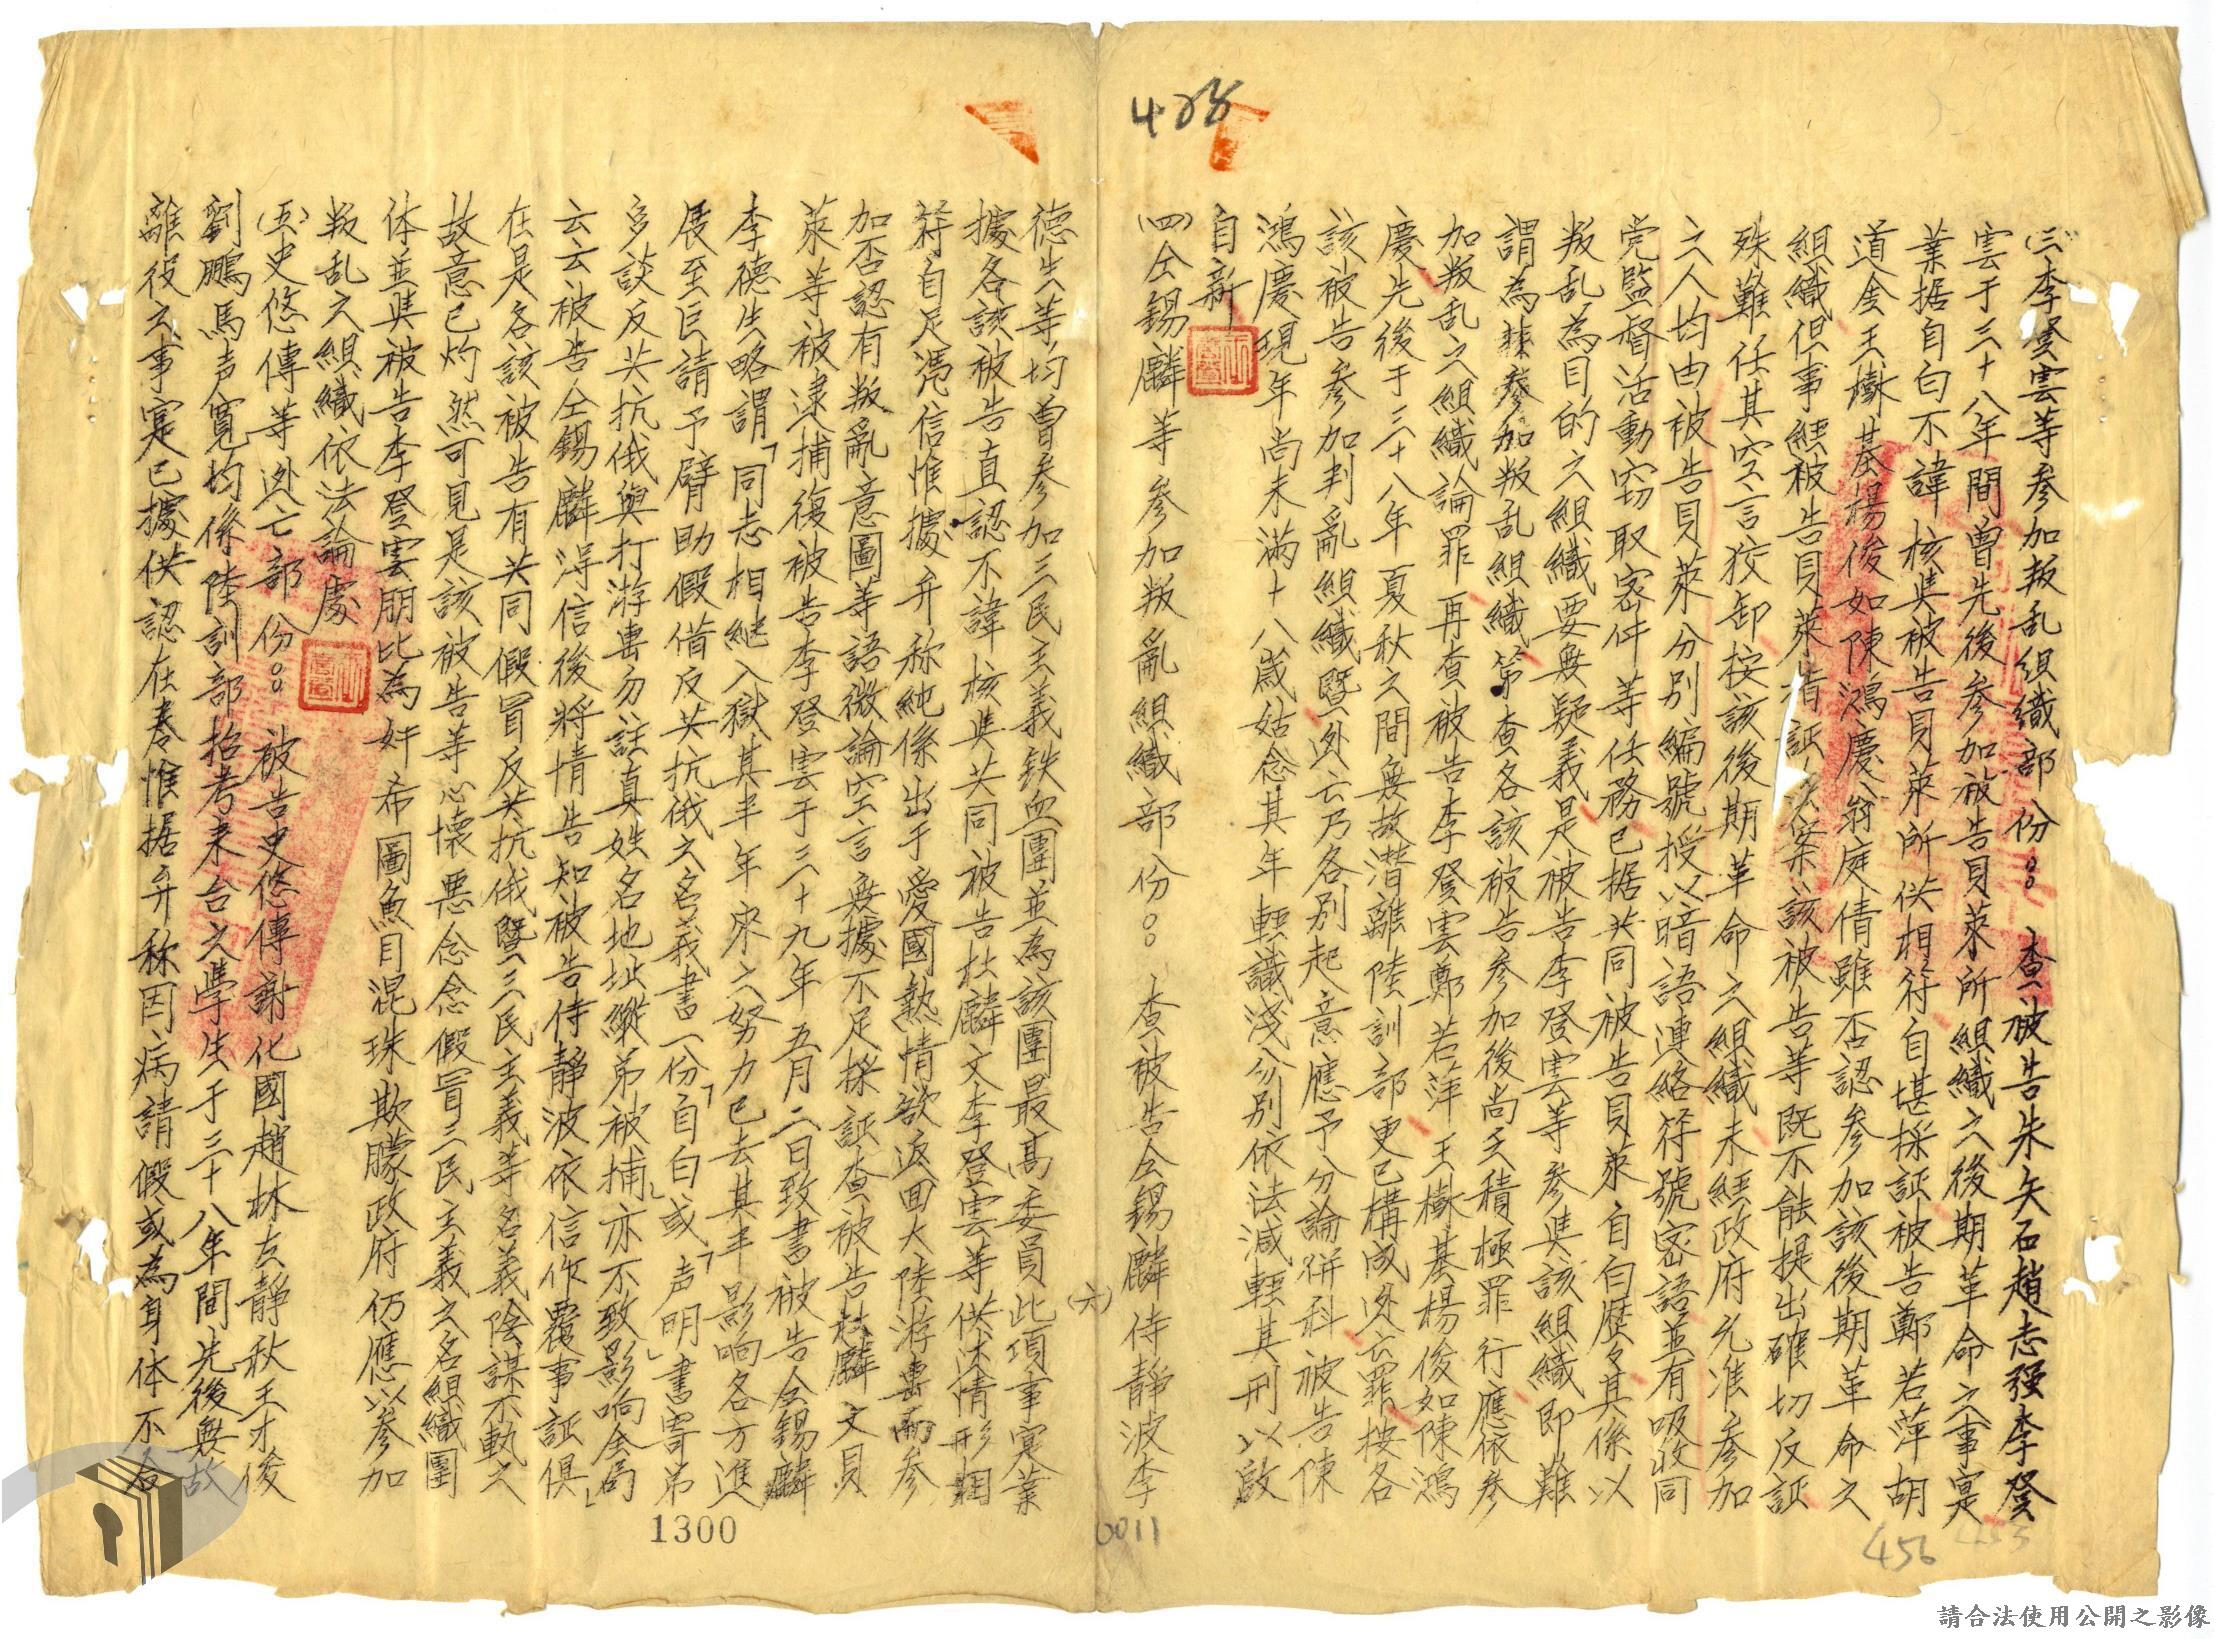 408
(三)李登雲等參加叛乱組織部份:。查被告朱矢石趙志强李登
雲于三十八年間曾先後參加被告貝萊所組織之後期革命之事寔
業据自白不諱核與被告貝萊所供相符自堪採証被告鄭若萍胡
道舍王樹基楊俊如陳鴻慶翁庭倩雖否認參加該後期革命之
組織但事經被告貝萊指証 案該被告等既不能提出確切反証
殊難任其空言狡卸按該後期革命之組織未經政府允准參加
之人均由被告貝萊分別編號授以暗語連絡符號密語並有吸收同
党監督活動窃取密件等任務已据共同被告貝萊自白歷々其係以
叛乱為目的之組織要無疑義是被告李登雲等參與該組織即難
謂為非參加叛乱組織第查各該被告參加後尚乏積極罪行應依參
加叛乱之組織論罪再查被告李登雲鄭若萍王樹基楊俊如陳鴻
慶先後于三十八年夏秋之間無故潛離陸訓部更已構成逃亡罪按各
該被告參加判亂組織暨逃亡乃各別起意應予分論併科被告陳
鴻慶現年尚未滿十八歲姑念其年輕識淺分別依法減輕其刑以啟
自新
(四)仝錫麟等參加叛亂組織部份:。查被告仝錫麟侍靜波李
(六)
德生等均曾參加三民主義鉄血團並為該團最高委員此項事寔業
據各該被告直認不諱核與共同被告杜麟文李登雲等供述情形相
符自足憑信惟據弁称純係出于愛國熱情欲返回大陸游击而參
加否認有叛亂意圖等語微論空言無據不足採証查被告杜麟文貝
萊等被逮捕後被告李登雲于三十九年五月二日致書被告仝錫麟
李德生略謂「同志相継入獄其半年來之努力已去其半影响各方進
展至巨請予臂助假借反共抗俄之名義書一份「自白」或「声明」書寄弟
多談反共抗俄與打游击勿註真姓名地址縱弟被捕亦不致影响全局」
云云被告仝錫麟淂信後將情告知被告侍靜波依信作覆事証俱
在是各該被告有共同假冒反共抗俄暨三民主義等名義陰謀不軌之
故意已灼然可見是該被告等心懷悪念念假冒三民主義之名組織團
体並與被告李登雲朋比為奸希圖魚目混珠欺矇政府仍應以參加
叛乱之組織依法論處
(五)史悠傳等逃亡部份:。被告史悠傳謝化國趙林左靜秋王才俊
劉鵬馬声寬均係陸訓部招考来台之學生于三十八年間先後無故
離役之事寔已據供認在卷惟据弁称因病請假或為身体不合
1300
0011
456
請合法使用公開之影像